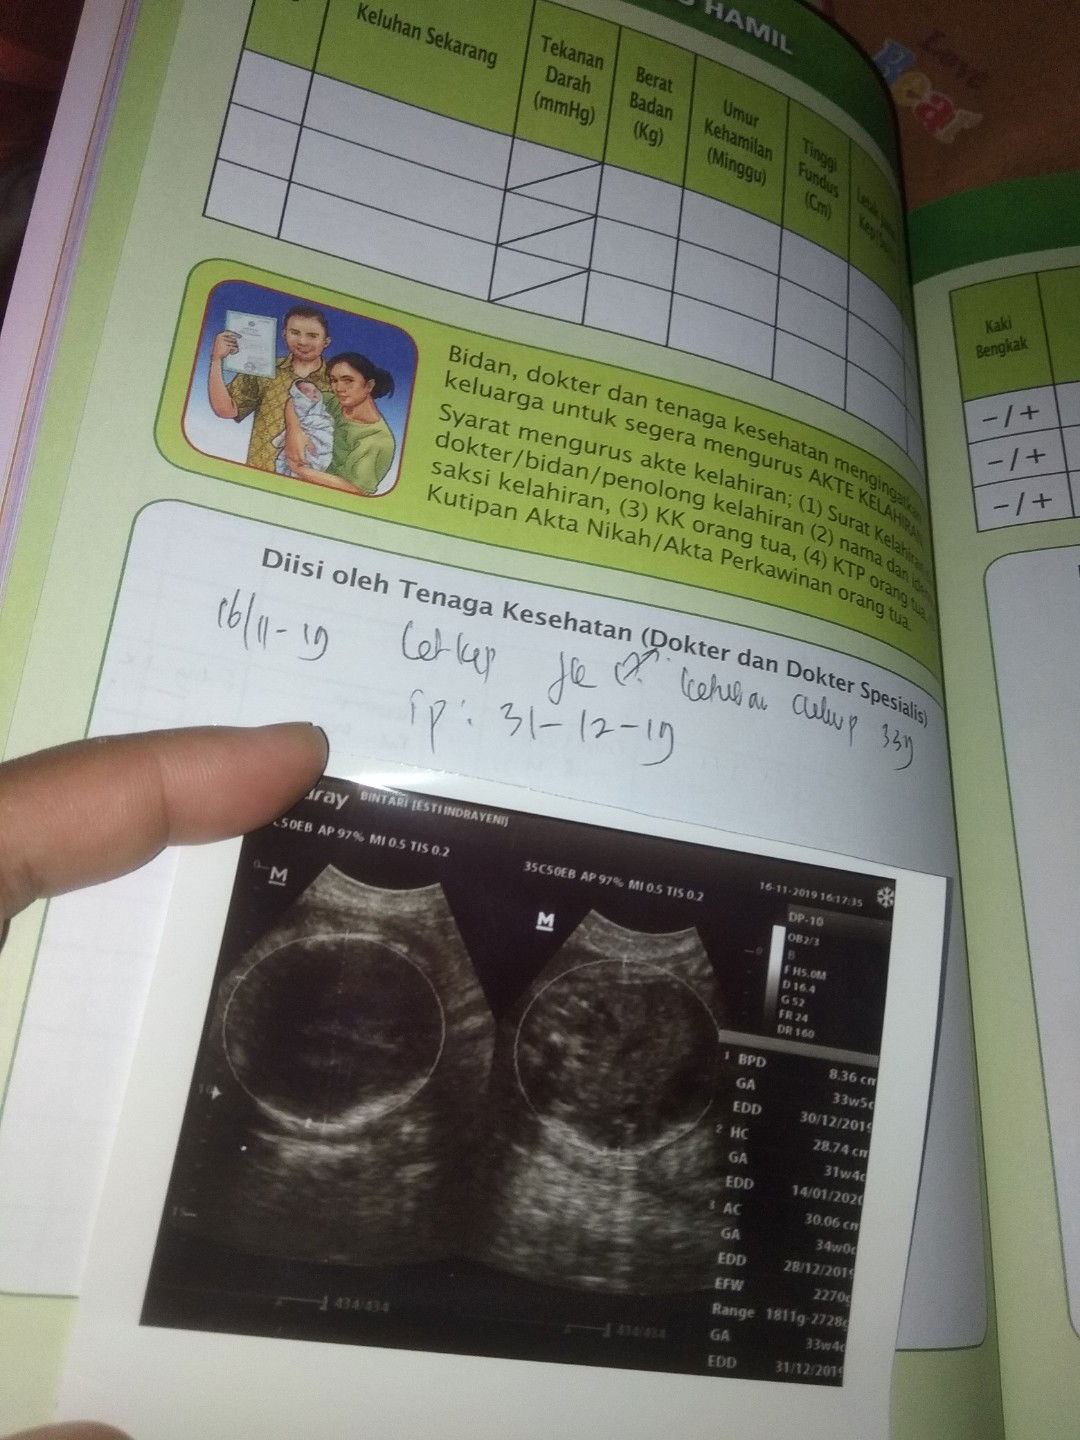 HAMIL
Keluhan Sekarang
Tekanan Darah (mmHg)
Berat Badan (Kg)
Umur Kehamilan (Minggu)
Tinggi Fundus (Cm)
Kaki Bengkak
- / +
- / +
- / +
Love
Bear
Bidan, dokter dan tenaga kesehatan mengingatkan
keluarga untuk segera mengurus AKTE KELAHIRAN
Syarat mengurus akte kelahiran; (1) Surat Kelahiran
dokter/bidan/penolong kelahiran (2) nama dan
saksi kelahiran, (3) KK orang tua, (4) KTP orang tua,
Kutipan Akta Nikah/Akta Perkawinan orang tua.
Diisi oleh Tenaga Kesehatan (Dokter dan Dokter Spesialis)
16/11-19
31-12-19
BINTARI [ESTI INDRAYENI]
C50EB AP 97% MI 0.5 TIS 0.2
35C50EB AP 97% MI 0.5 TIS 0.2
16-11-2019 16:17:35
M
M
DP-10
OB2/3
B
F H5.0M
D 16.4
G 52
FR 24
DR 160
1 BPD 8.36 cm
GA 33w5d
EDD 30/12/2019
2 HC 28.74 cm
GA 31w4d
EDD 14/01/2020
3 AC 30.06 cm
GA 34w0d
EDD 28/12/2019
EFW 2270g
Range 1811g-2728g
GA 33w4d
EDD 31/12/2019
434/434
434/434